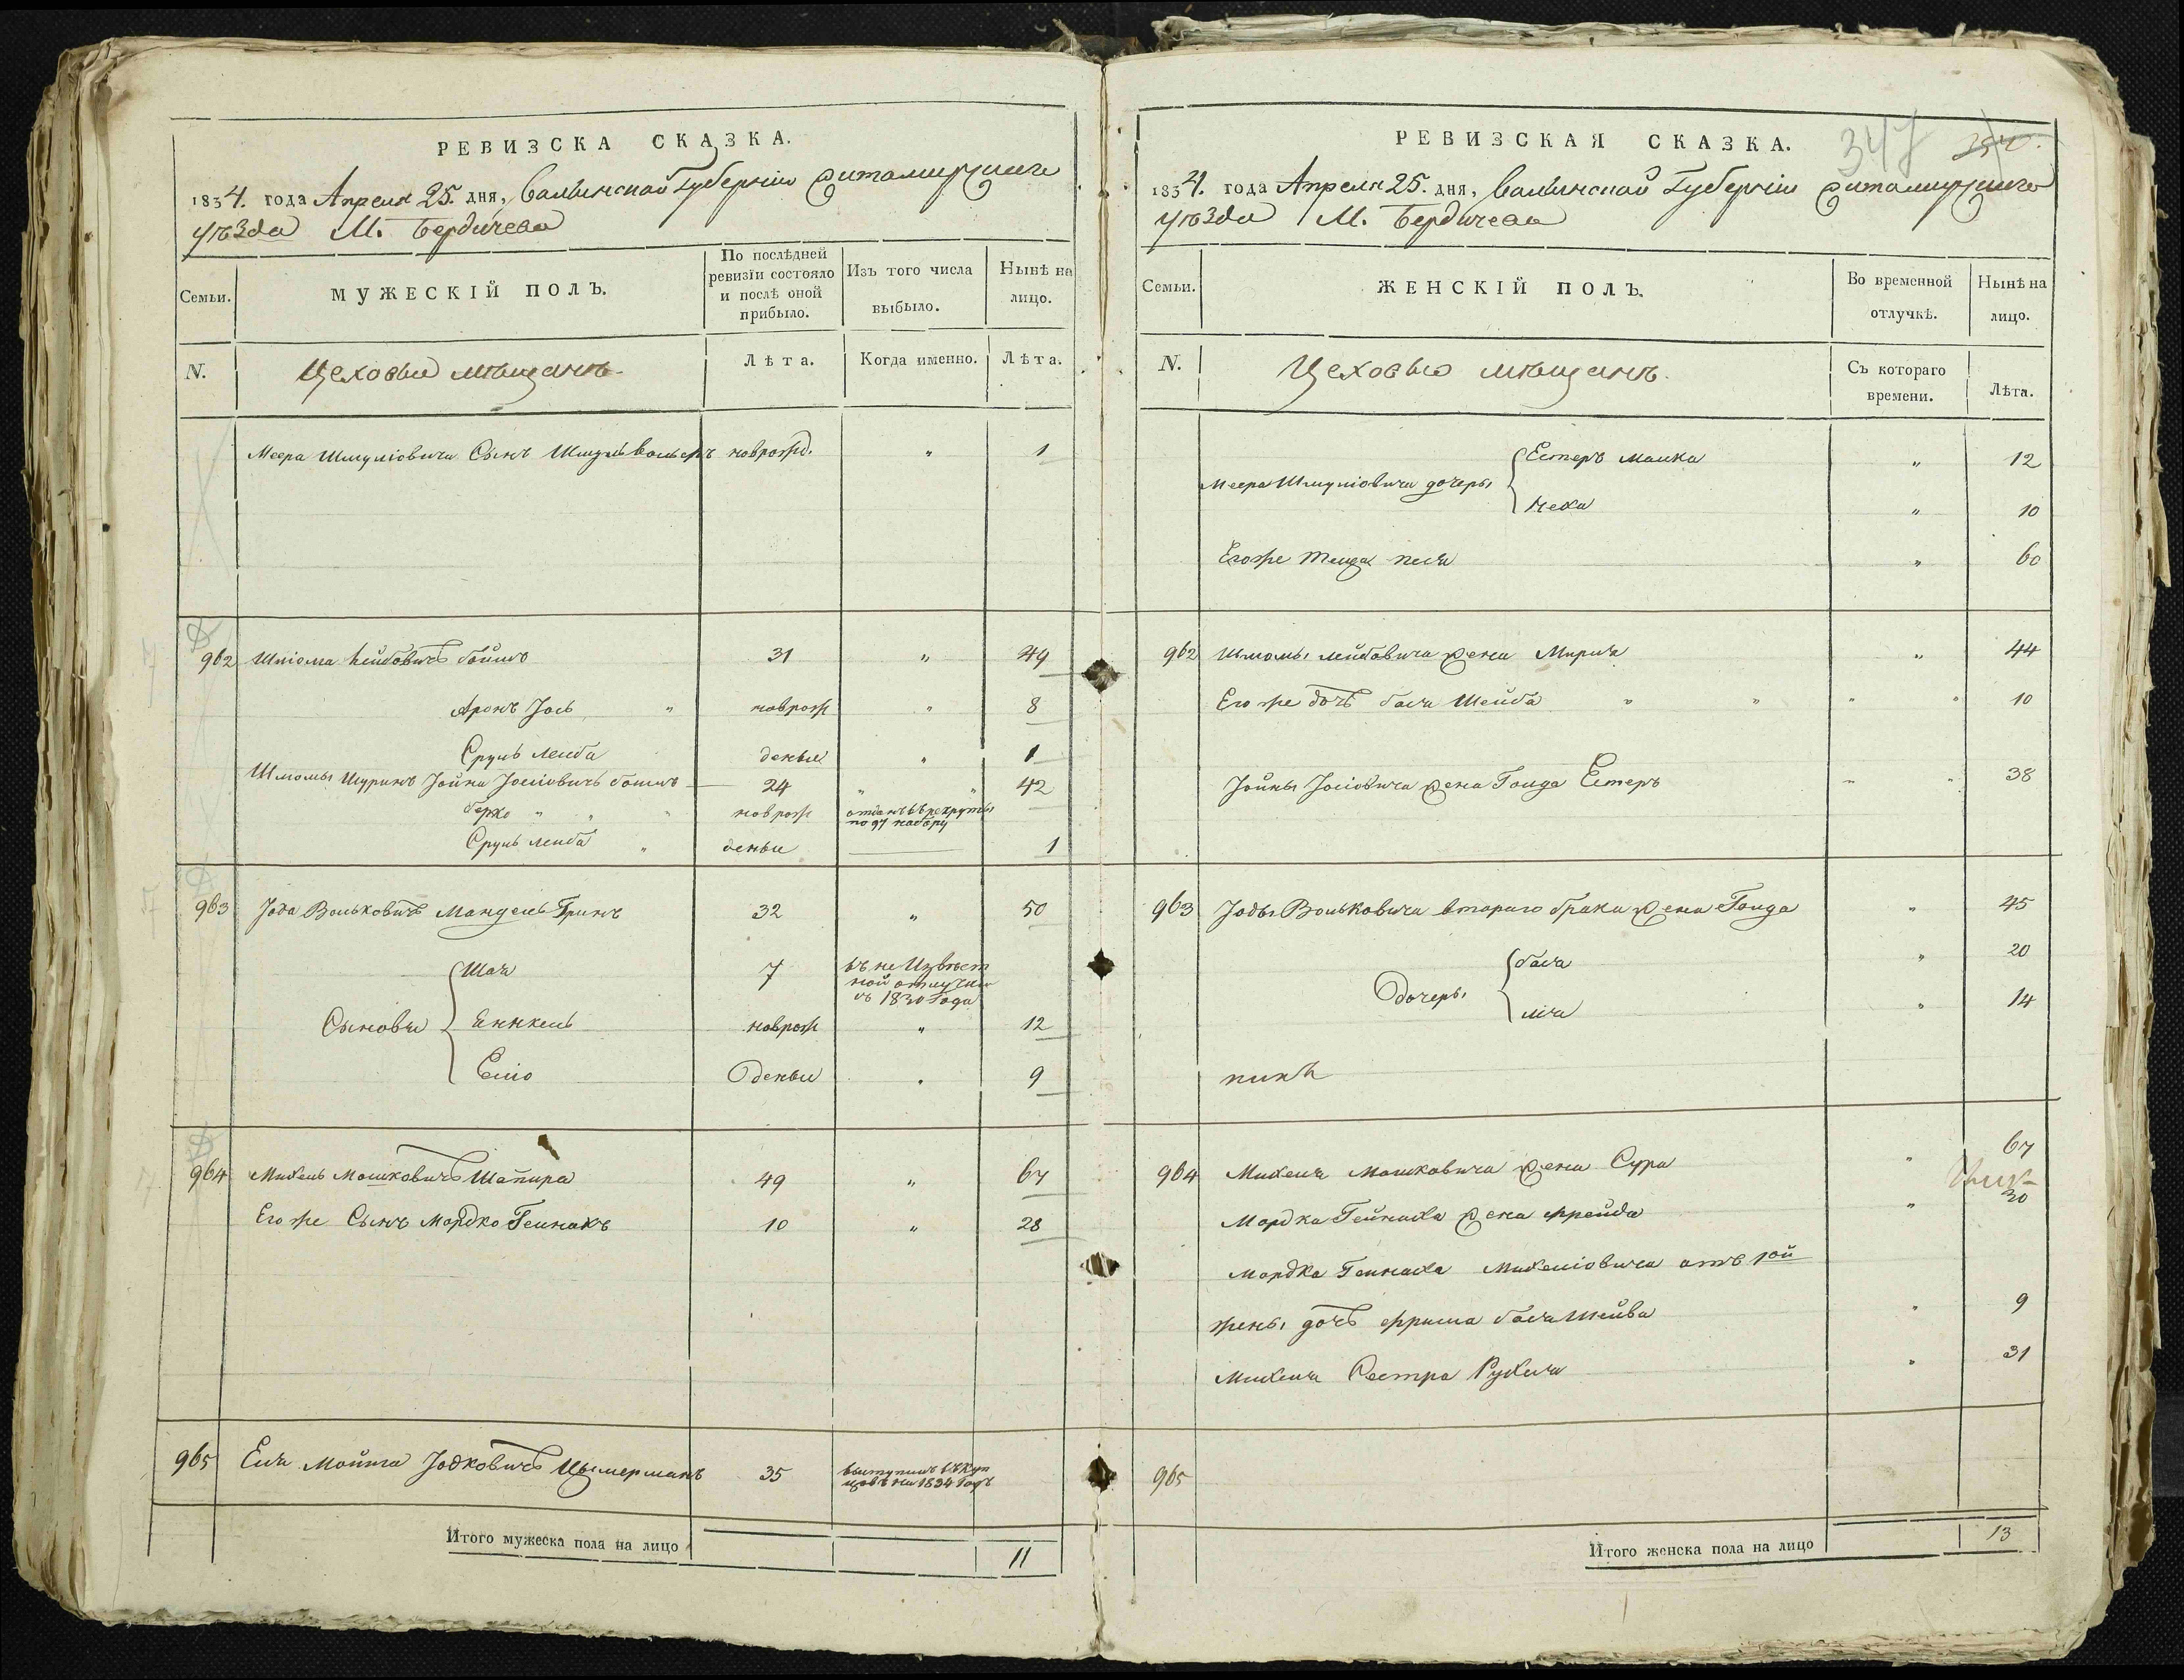 РЕВИЗСКА СКАЗКА.
1834. года Апреля 25. дня, Валынской Губерніи Житомирскаго
уѣзда М. Бердичева
Семьи.
МУЖЕСКІЙ ПОЛЪ.
По послѣдней ревизіи состояло и послѣ оной прибыло.
Изъ того числа выбыло.
Нынѣ на лицо.
N.
Цеховые мѣщанъ
Лѣта.
Когда именно.
Лѣта.
Меера Шмуліовича Сынъ Шмуль новрожд. " 1
962 Шліома Лейбовичъ " 49
31
Аронъ Іось " новрож " 8
Сруль Лейба " 1
Шломы Шуринъ Іойна Іосіовичъ 24 " " 42
Берко " " " новрож отданъ въ рекруты
по 97 набору
Сруль Лейба " 1
963 Іода Вольковичъ Мандель Гринъ 32 " 50
Сыновья
Шая 7 въ не Извѣст
ной отлучки
съ 1830 Года
Еннкель новрож " 12
Еліо 9
964 Михель Мошковичъ Шапира 49 " 67
Его же Сынъ Мордко Гейнахъ 10 " 28
965 Еля Мойша Іодковичъ Цымерманъ 35 выступилъ въ Куп
цовъ на 1834 Годъ
Итого мужеска пола на лицо 11
347
РЕВИЗСКАЯ СКАЗКА.
1834. года Апреля 25. дня, Валынской Губерніи Житомирскаго
уѣзда М. Бердичева
Семьи.
ЖЕНСКІЙ ПОЛЪ.
Во временной отлучкѣ.
Нынѣ на лицо.
N.
Цеховыхъ мѣщанъ.
Съ котораго времени.
Лѣта.
Меера Шмуліовича дочеры
Естеръ Малка " 12
Неха " 10
Егоже Теща песя " 60
962 Шломы Лейбовича жена Миря " 44
Его же дочь бася Шейва " " " " 10
Іойны Іосіовича жена Голда Естеръ " " 38
963 Іоды Вольковича втораго брака жена Голда " 45
Дочеры
бася " 20
лія " 14
964 Михеля Мошковича жена Сура " 67
Мордка Гейнаха жена Фрейда " 30
Мордка Гейнаха Михеліовича отъ 1ой
жены дочь Фрима бася Шейва " 9
Михеля Сестра Рухля " 31
965
Итого женска пола на лицо 13